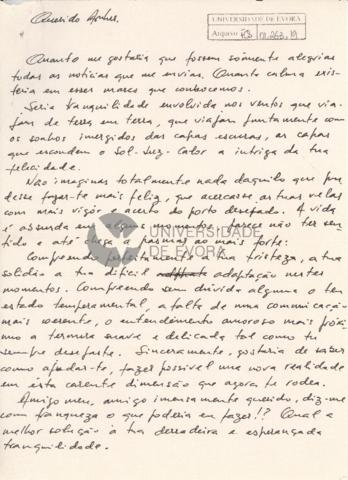 Querido
UNIVERSIDADE DE ÉVORA
Arquivo
Quanto me gostaria que fossem sòmente alegrias
todas as notícias que me envias. Quanta calma exis-
tiria em esses mares que conhecemos.
Seria tranquilidade envolvida nos ventos que via-
jam de terra em terra, que viajam juntamente com
os sonhos imergidos das capas escuras, as capas
que escondem o Sol-Luz-Calor a intriga da tua
felicidade.
Não imaginas totalmente nada daquilo que pu-
desse fazer-te mais feliz, que acercasse as tuas velas
com mais vigor e acerto do porto desejado. A vida
é absurda em alguns momentos, parece não ter sen-
tido e até chega a pasmar ao mais forte:
Compreendo perfeitamente a tua tristeza, a tua
solidão a tua difícil adaptação nestes
momentos. Compreendo sem dúvida alguma o teu
estado temperamental, a falta de uma comunicação
mais coerente, o entendimento amoroso mais próxi-
mo a ternura suave e delicada tal como tu
sempre desejaste. Sinceramente, gostaria de saber
como ajudar-te, fazer possível uma nova realidade
em esta carente dimensão que agora te rodea.
Amigo meu, amigo imensamente querido, diz-me
com franqueza o que poderia eu fazer!? Qual a
melhor solução à tua derradeira e esperançada
tranquilidade.
UNIVERSIDADE
DE ÉVORA